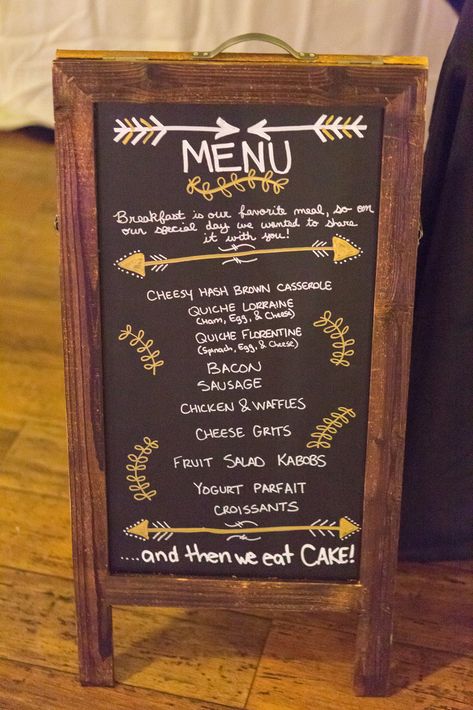 MENU
Breakfast is our favorite meal, so on
our special day we wanted to share
it with you!
CHEESY HASH BROWN CASSEROLE
QUICHE LORRAINE
(Ham, Egg, & Cheese)
QUICHE FLORENTINE
(Spinach, Egg, & Cheese)
BACON
SAUSAGE
CHICKEN & WAFFLES
CHEESE GRITS
FRUIT SALAD KABOBS
YOGURT PARFAIT
CROISSANTS
....and then we eat CAKE!